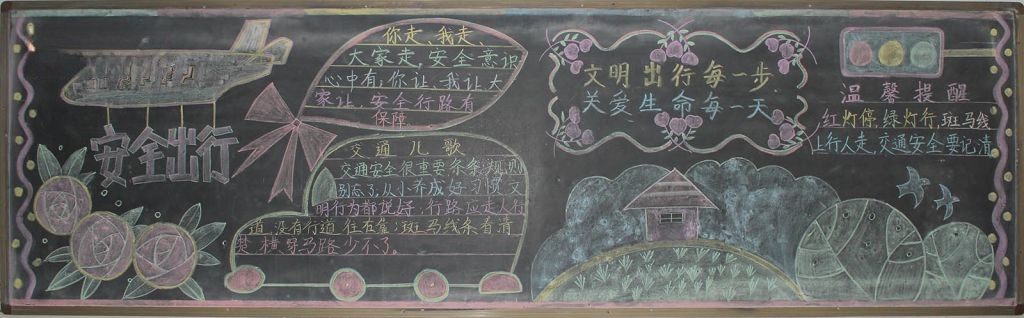 安全出行
你走、我走、
大家走,安全意识
心中有,你让、我让大
家让,安全行路有
保障。
交通儿歌
交通安全很重要条条规则
别忘了,从小养成好习惯文
明行为都说好,行路应走人行
道,没有行道往右靠;斑马线条看清
楚横穿马路少不了。
文明出行每一步
关爱生命每一天
温馨提醒
红灯停,绿灯行,斑马线
上行人走,交通安全要记清